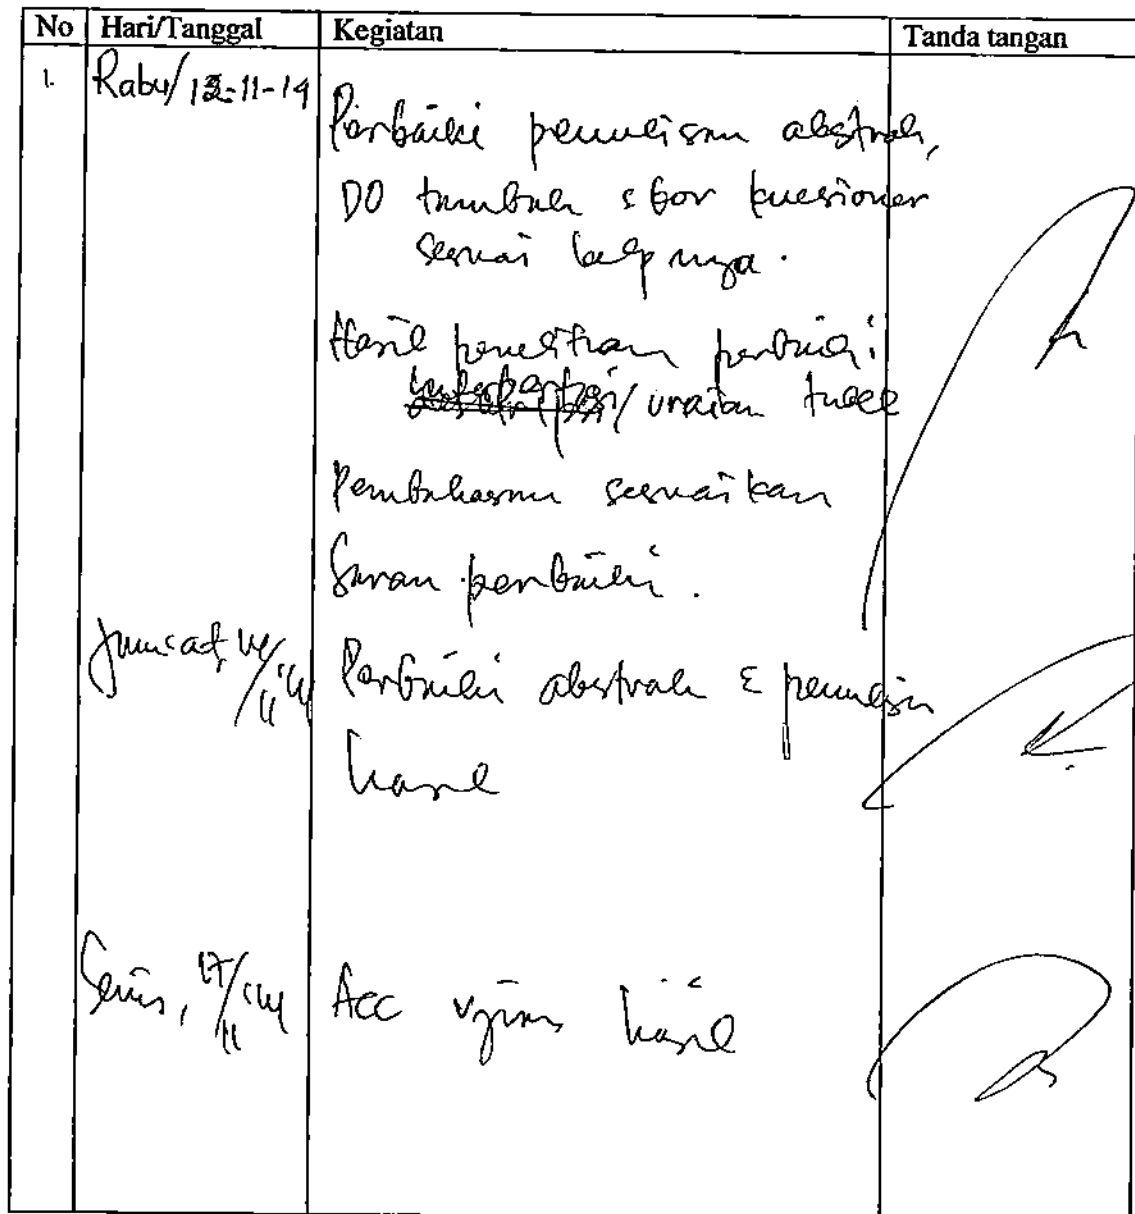 No Hari/Tanggal Kegiatan Tanda tangan
1. Rabu/ 12-11-14
Perbaiki penulisan abstrak,
DO tambah skor kuesioner
sesuai nya.
Hasil penelitian perbaiki:
/ uraian tabel
Pembahasan sesuaikan
Saran perbaiki.
Jum'at, 14/11 '14 Perbaiki abstrak & penulisan
hasil
Senin, 17/11 '14 Acc ujian hasil